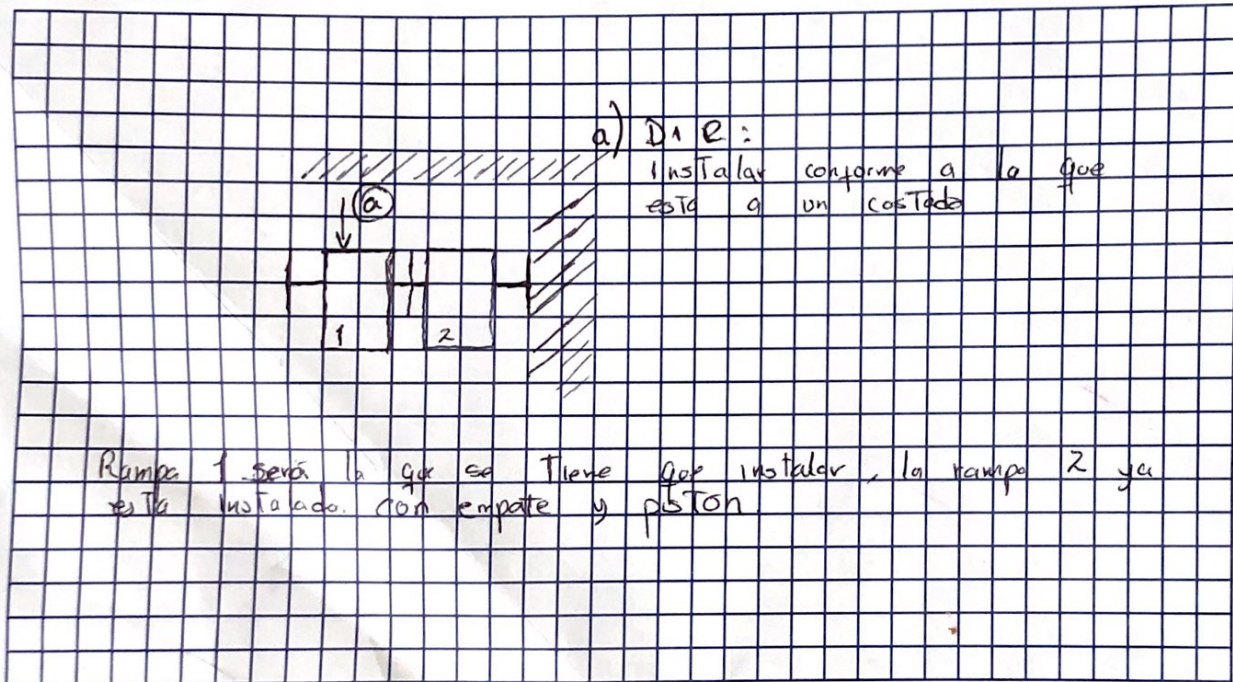 a) D1 e:
Instalar conforme a la que
esta a un costado
a
1 2
Rampa 1 sera la que se Tiene que instalar, la rampa 2 ya
esta instalada. con empate y piston.